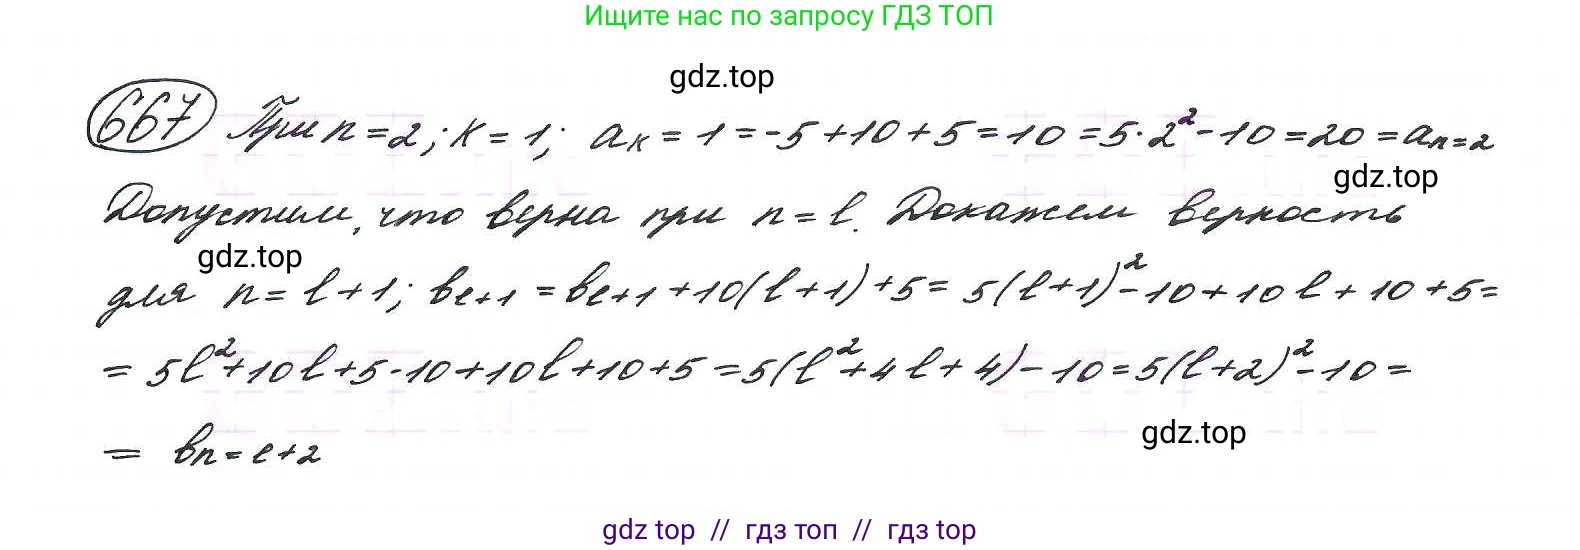 Ищите нас по запросу ГДЗ ТОП
gdz.top
667 При n=2; k=1; aₖ = 1 = -5+10+5=10=5·2²-10=20=aₙ₌₂
gdz.top
Допустим, что верна при n=l. Докажем верность
gdz.top
для n=l+1; bₗ₊₁ = bₗ₊₁+10(l+1)+5= 5(l+1)²-10+10l+10+5=
= 5l²+10l+5-10+10l+10+5=5(l²+4l+4)-10=5(l+2)²-10=
gdz.top
= bₙ₌ₗ₊₂
gdz top // гдз топ // гдз top